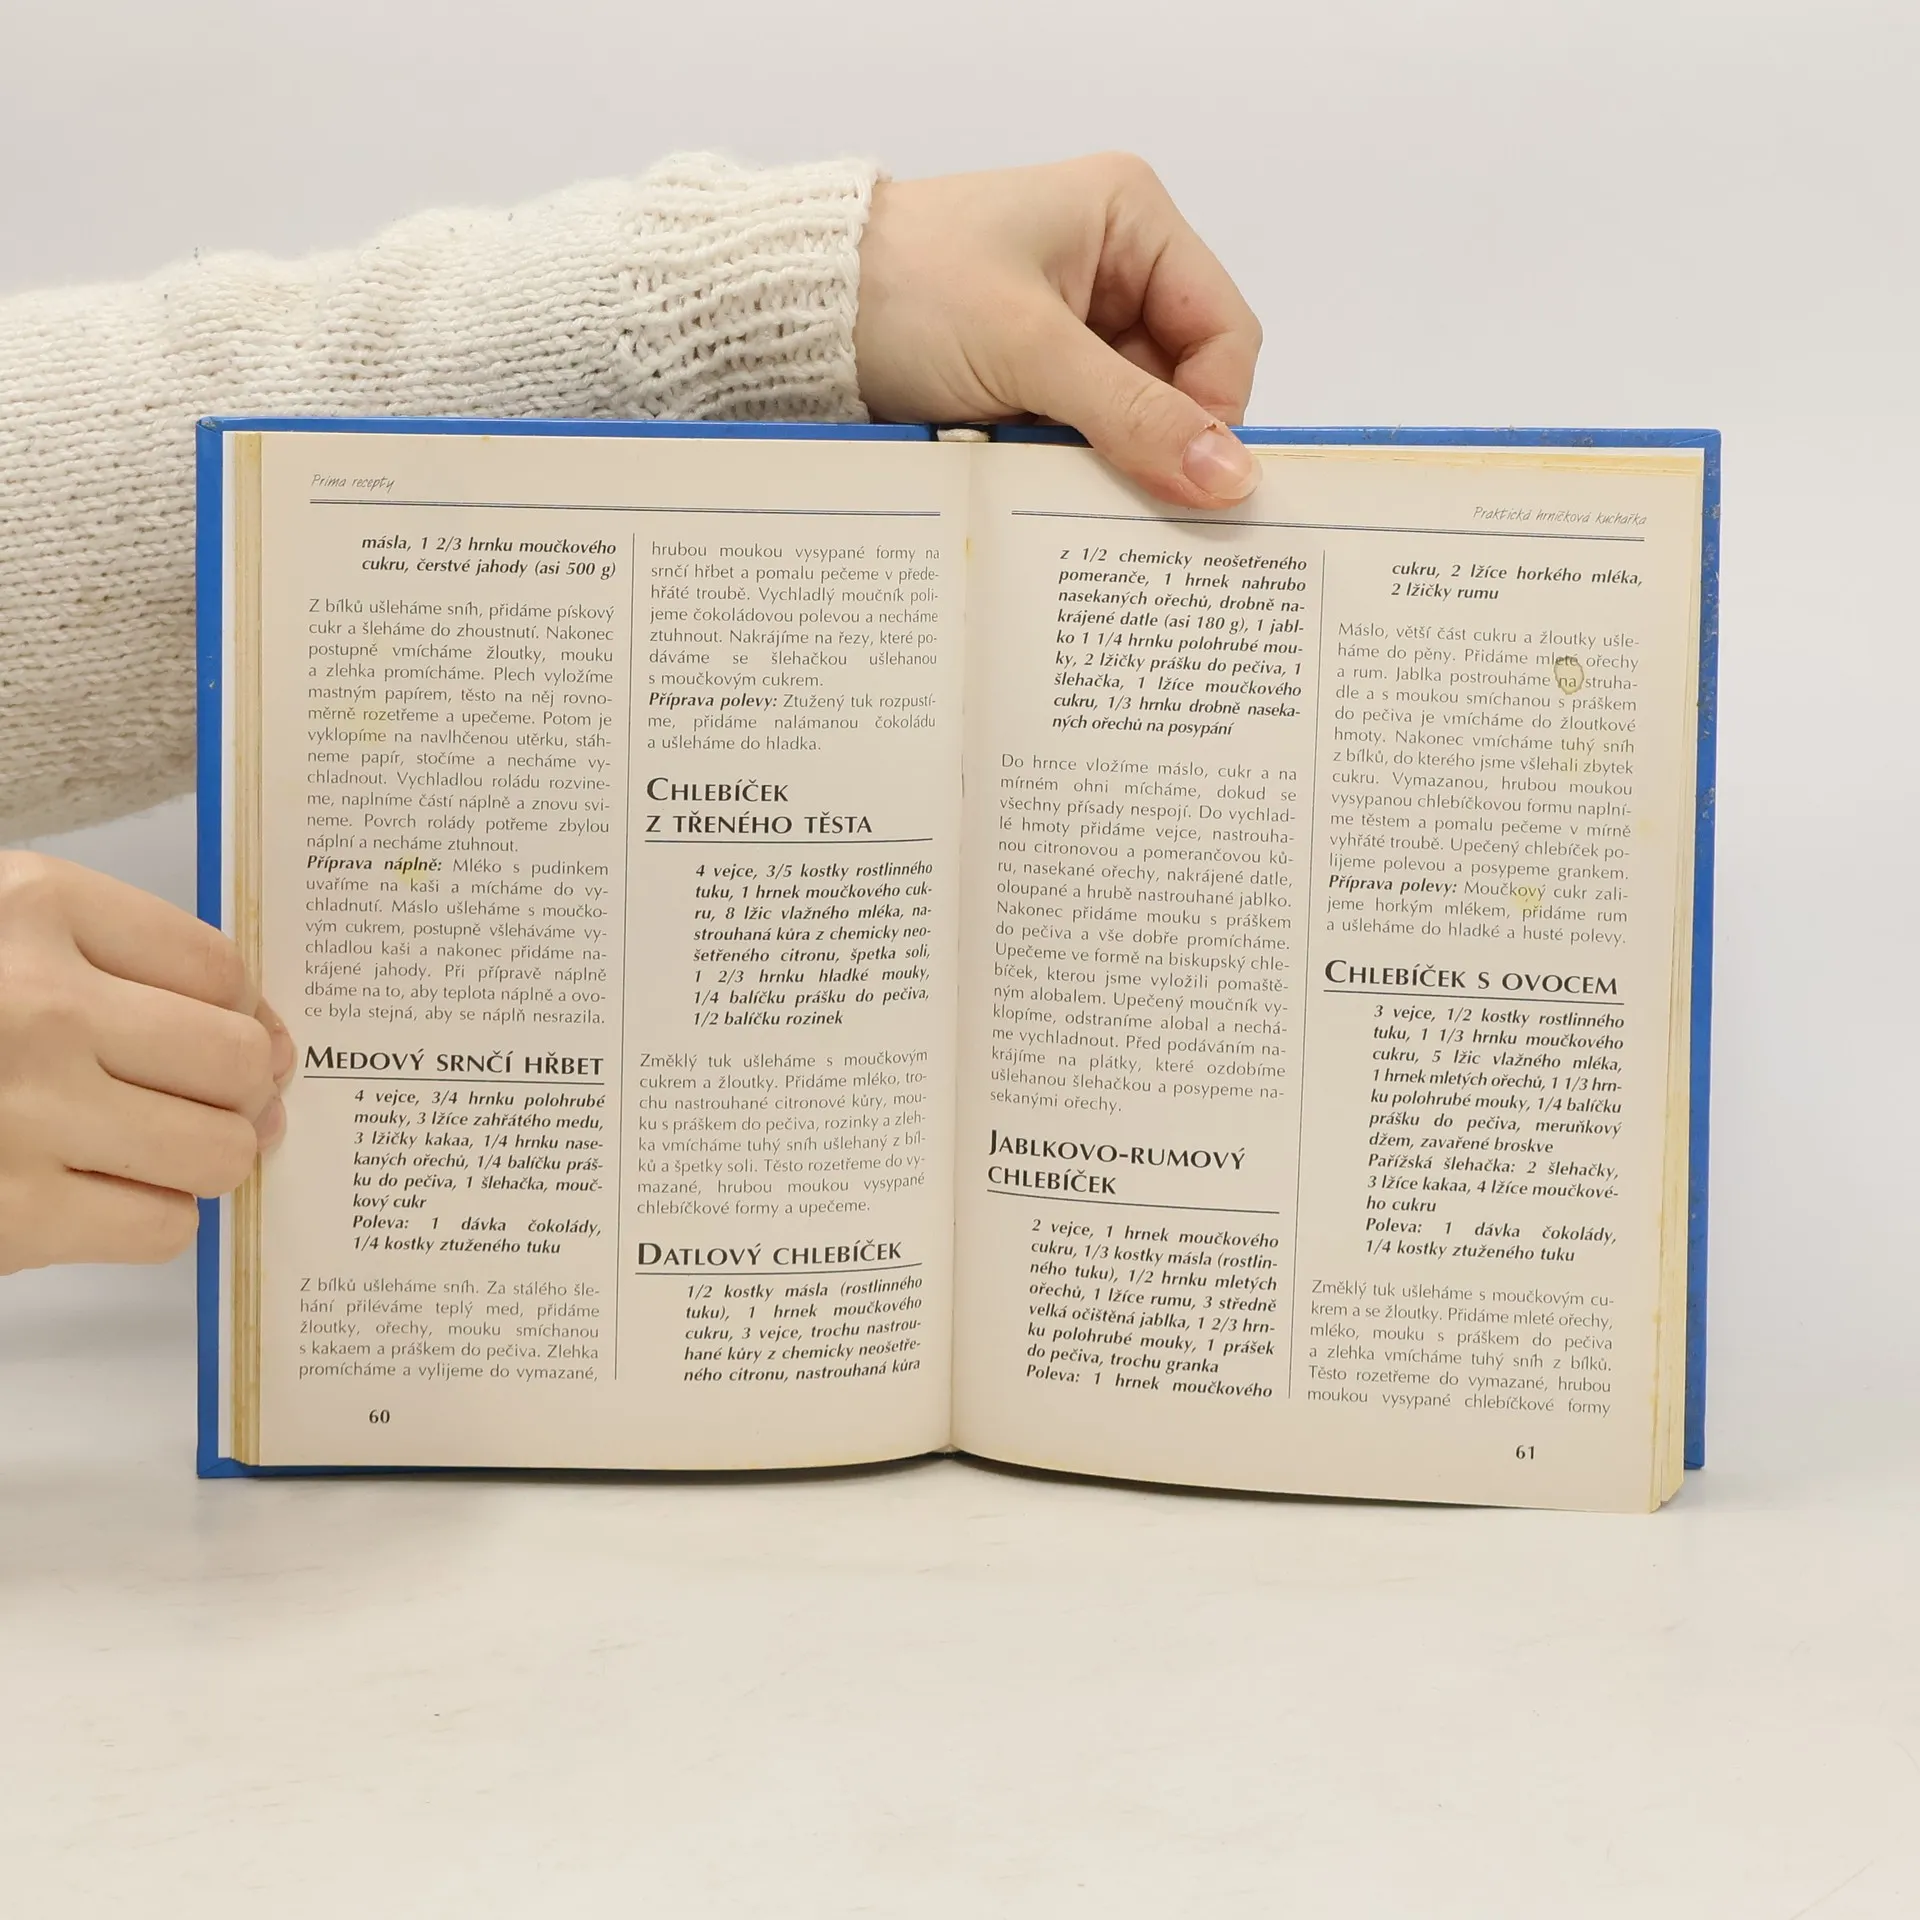 Prima recepty
másla, 1 2/3 hrnku moučkového
cukru, čerstvé jahody (asi 500 g)
Z bílků ušleháme sníh, přidáme pískový
cukr a šleháme do zhoustnutí. Nakonec
postupně vmícháme žloutky, mouku
a zlehka promícháme. Plech vyložíme
mastným papírem, těsto na něj rovno-
měrně rozetřeme a upečeme. Potom je
vyklopíme na navlhčenou utěrku, stáh-
neme papír, stočíme a necháme vy-
chladnout. Vychladlou roládu rozvine-
me, naplníme částí náplně a znovu svi-
neme. Povrch rolády potřeme zbylou
náplní a necháme ztuhnout.
Příprava náplně: Mléko s pudinkem
uvaříme na kaši a mícháme do vy-
chladnutí. Máslo ušleháme s moučko-
vým cukrem, postupně všleháváme vy-
chladlou kaši a nakonec přidáme na-
krájené jahody. Při přípravě náplně
dbáme na to, aby teplota náplně a ovo-
ce byla stejná, aby se náplň nesrazila.
MEDOVÝ SRNČÍ HŘBET
4 vejce, 3/4 hrnku polohrubé
mouky, 3 lžíce zahřátého medu,
3 lžičky kakaa, 1/4 hrnku nase-
kaných ořechů, 1/4 balíčku práš-
ku do pečiva, 1 šlehačka, mouč-
kový cukr
Poleva: 1 dávka čokolády,
1/4 kostky ztuženého tuku
Z bílků ušleháme sníh. Za stálého šle-
hání přiléváme teplý med, přidáme
žloutky, ořechy, mouku smíchanou
s kakaem a práškem do pečiva. Zlehka
promícháme a vylijeme do vymazané,
60
hrubou moukou vysypané formy na
srnčí hřbet a pomalu pečeme v přede-
hřáté troubě. Vychladlý moučník poli-
jeme čokoládovou polevou a necháme
ztuhnout. Nakrájíme na řezy, které po-
dáváme se šlehačkou ušlehanou
s moučkovým cukrem.
Příprava polevy: Ztužený tuk rozpustí-
me, přidáme nalámanou čokoládu
a ušleháme do hladka.
CHLEBÍČEK
Z TŘENÉHO TĚSTA
4 vejce, 3/5 kostky rostlinného
tuku, 1 hrnek moučkového cuk-
ru, 8 lžic vlažného mléka, na-
strouhaná kůra z chemicky neo-
šetřeného citronu, špetka soli,
1 2/3 hrnku hladké mouky,
1/4 balíčku prášku do pečiva,
1/2 balíčku rozinek
Změklý tuk ušleháme s moučkovým
cukrem a žloutky. Přidáme mléko, tro-
chu nastrouhané citronové kůry, mou-
ku s práškem do pečiva, rozinky a zleh-
ka vmícháme tuhý sníh ušlehaný z bíl-
ků a špetky soli. Těsto rozetřeme do vy-
mazané, hrubou moukou vysypané
chlebíčkové formy a upečeme.
DATLOVÝ CHLEBÍČEK
1/2 kostky másla (rostlinného
tuku), 1 hrnek moučkového
cukru, 3 vejce, trochu nastrou-
hané kůry z chemicky neošetře-
ného citronu, nastrouhaná kůra
Praktická hrníčková kuchařka
z 1/2 chemicky neošetřeného
pomeranče, 1 hrnek nahrubo
nasekaných ořechů, drobně na-
krájené datle (asi 180 g), 1 jabl-
ko 1 1/4 hrnku polohrubé mou-
ky, 2 lžičky prášku do pečiva, 1
šlehačka, 1 lžíce moučkového
cukru, 1/3 hrnku drobně naseka-
ných ořechů na posypání
Do hrnce vložíme máslo, cukr a na
mírném ohni mícháme, dokud se
všechny přísady nespojí. Do vychlad-
lé hmoty přidáme vejce, nastrouha-
nou citronovou a pomerančovou ků-
ru, nasekané ořechy, nakrájené datle,
oloupané a hrubě nastrouhané jablko.
Nakonec přidáme mouku s práškem
do pečiva a vše dobře promícháme.
Upečeme ve formě na biskupský chle-
bíček, kterou jsme vyložili pomaště-
ným alobalem. Upečený moučník vy-
klopíme, odstraníme alobal a nechá-
me vychladnout. Před podáváním na-
krájíme na plátky, které ozdobíme
ušlehanou šlehačkou a posypeme na-
sekanými ořechy.
JABLKOVO-RUMOVÝ
CHLEBÍČEK
2 vejce, 1 hrnek moučkového
cukru, 1/3 kostky másla (rostlin-
ného tuku), 1/2 hrnku mletých
ořechů, 1 lžíce rumu, 3 středně
velká očištěná jablka, 1 2/3 hrn-
ku polohrubé mouky, 1 prášek
do pečiva, trochu granka
Poleva: 1 hrnek moučkového
cukru, 2 lžíce horkého mléka,
2 lžičky rumu
Máslo, větší část cukru a žloutky ušle-
háme do pěny. Přidáme mleté ořechy
a rum. Jablka postrouháme na struha-
dle a s moukou smíchanou s práškem
do pečiva je vmícháme do žloutkové
hmoty. Nakonec vmícháme tuhý sníh
z bílků, do kterého jsme všlehali zbytek
cukru. Vymazanou, hrubou moukou
vysypanou chlebíčkovou formu naplní-
me těstem a pomalu pečeme v mírně
vyhřáté troubě. Upečený chlebíček po-
lijeme polevou a posypeme grankem.
Příprava polevy: Moučkový cukr zali-
jeme horkým mlékem, přidáme rum
a ušleháme do hladké a husté polevy.
CHLEBÍČEK S OVOCEM
3 vejce, 1/2 kostky rostlinného
tuku, 1 1/3 hrnku moučkového
cukru, 5 lžic vlažného mléka,
1 hrnek mletých ořechů, 1 1/3 hrn-
ku polohrubé mouky, 1/4 balíčku
prášku do pečiva, meruňkový
džem, zavařené broskve
Pařížská šlehačka: 2 šlehačky,
3 lžíce kakaa, 4 lžíce moučkové-
ho cukru
Poleva: 1 dávka čokolády,
1/4 kostky ztuženého tuku
Změklý tuk ušleháme s moučkovým cu-
krem a se žloutky. Přidáme mleté ořechy,
mléko, mouku s práškem do pečiva
a zlehka vmícháme tuhý sníh z bílků.
Těsto rozetřeme do vymazané, hrubou
moukou vysypané chlebíčkové formy
61